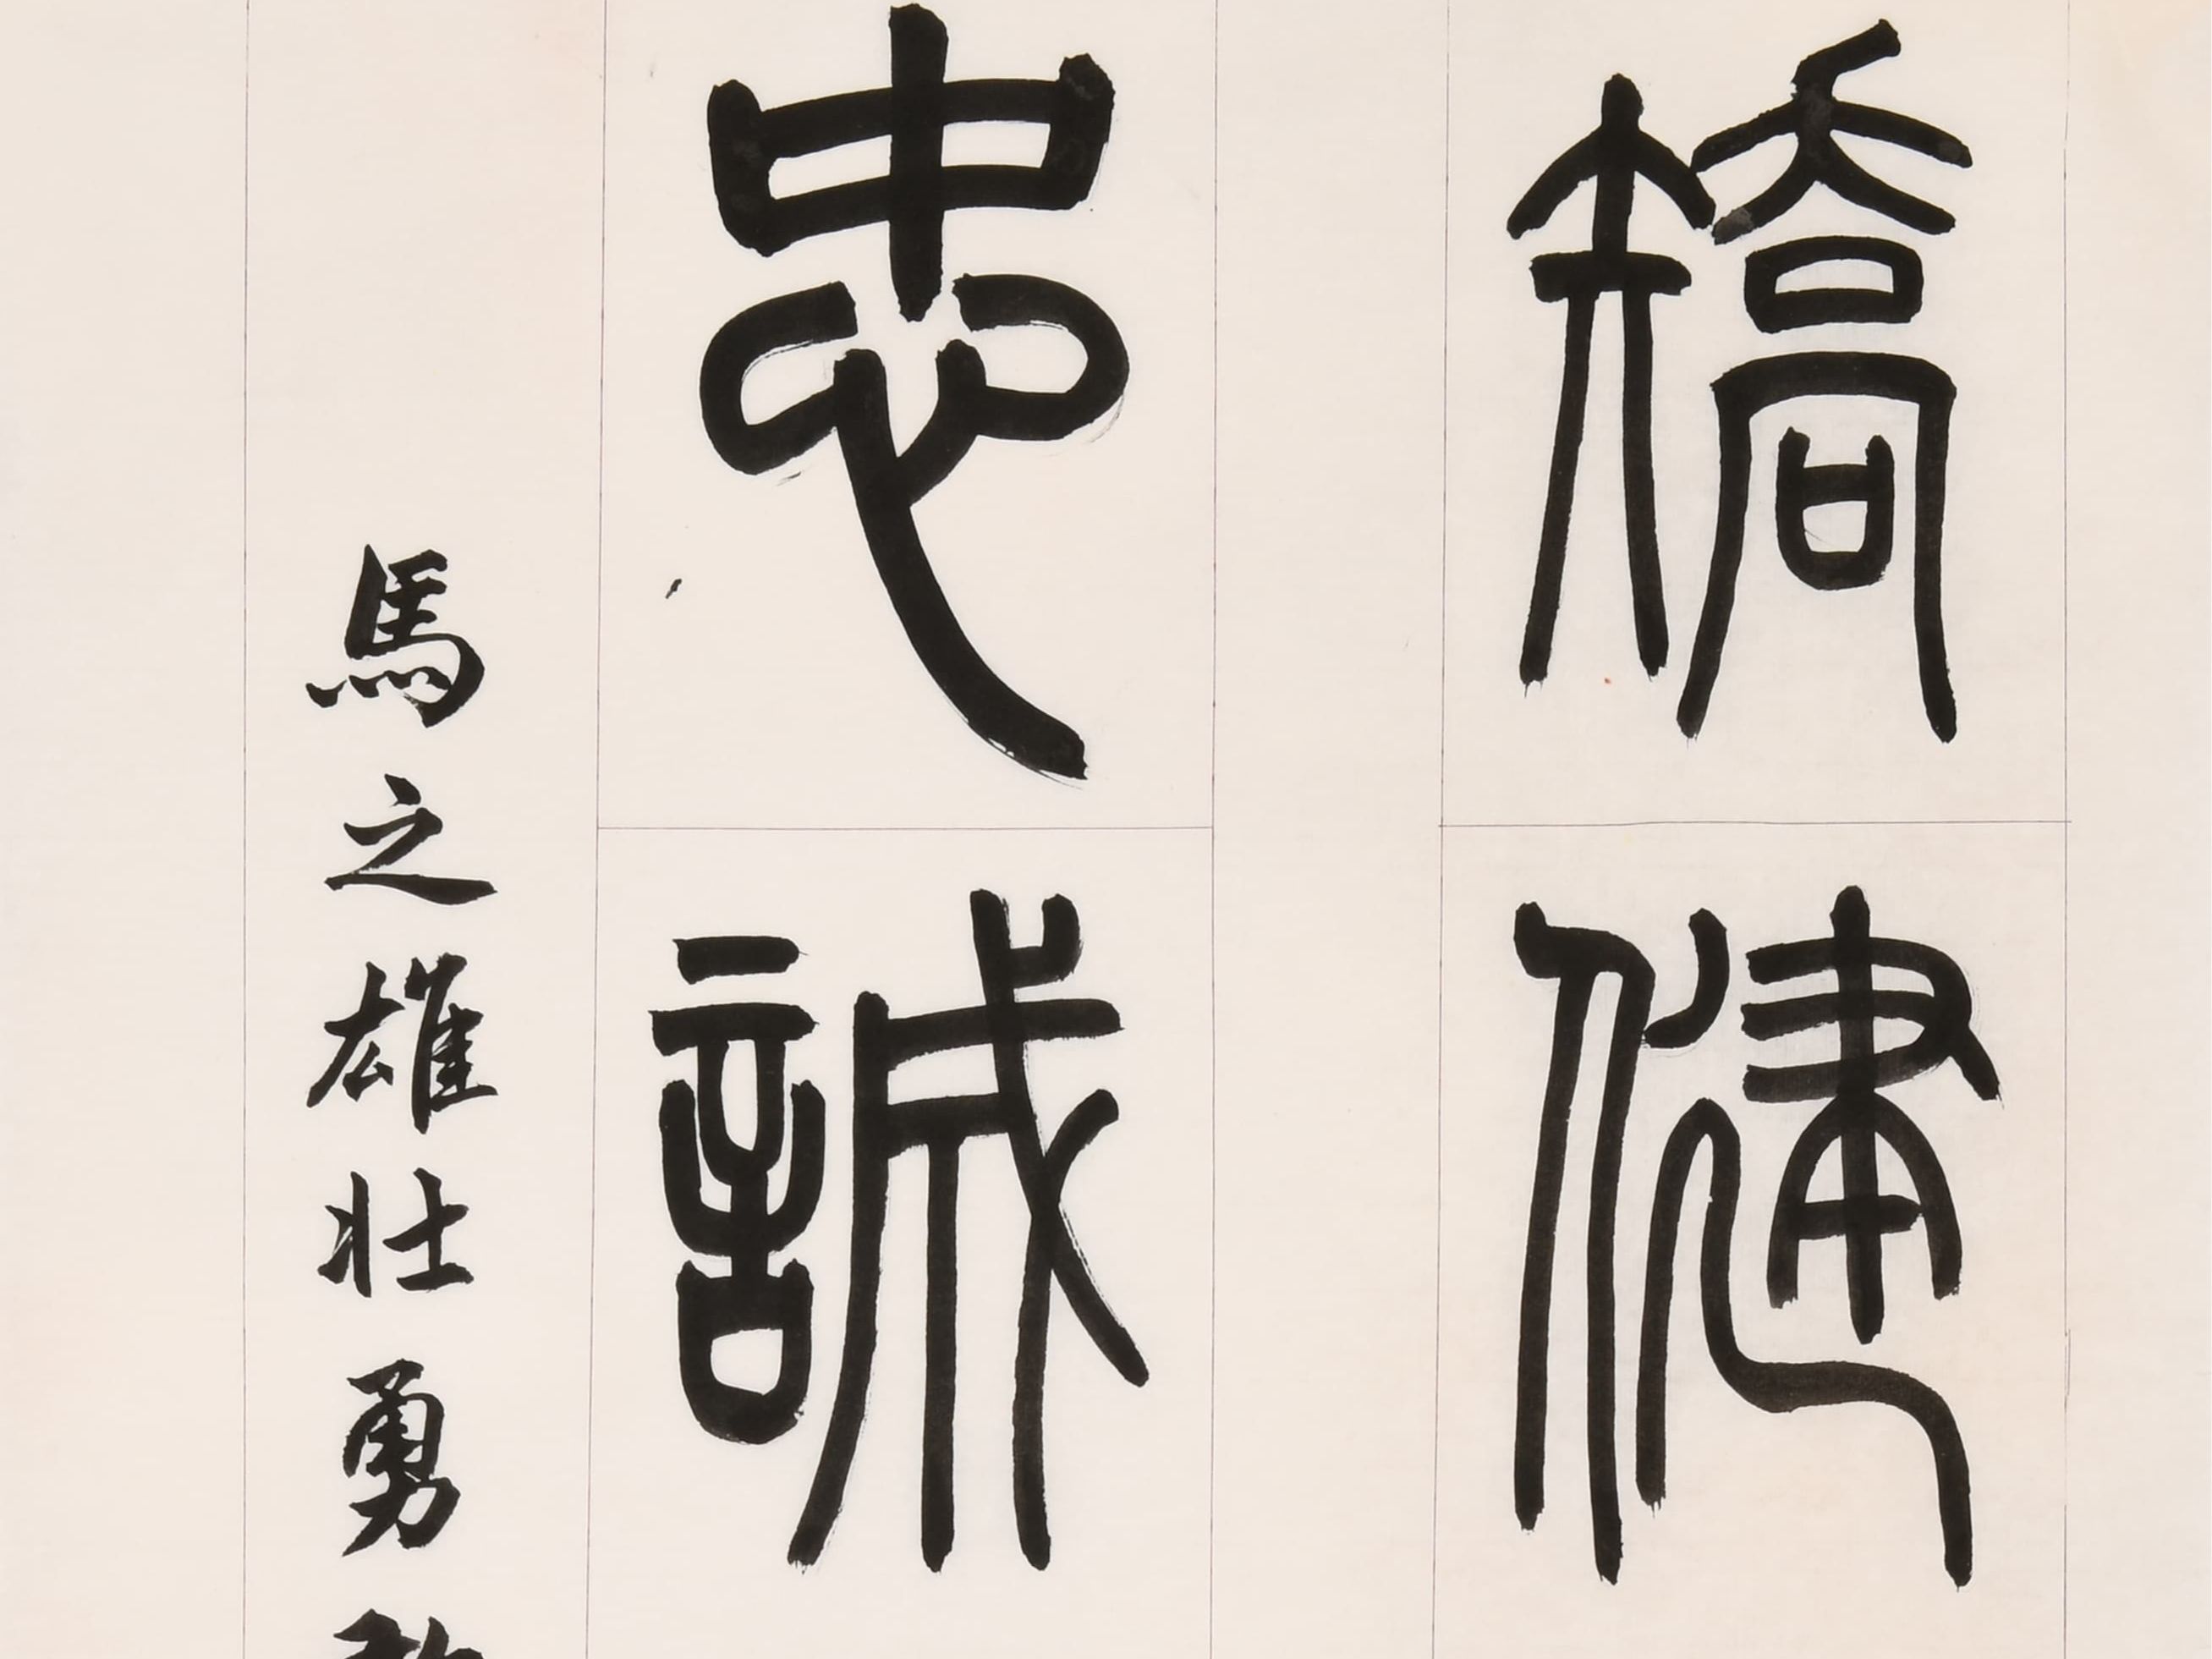 矯健
忠誠
馬之雄壯勇